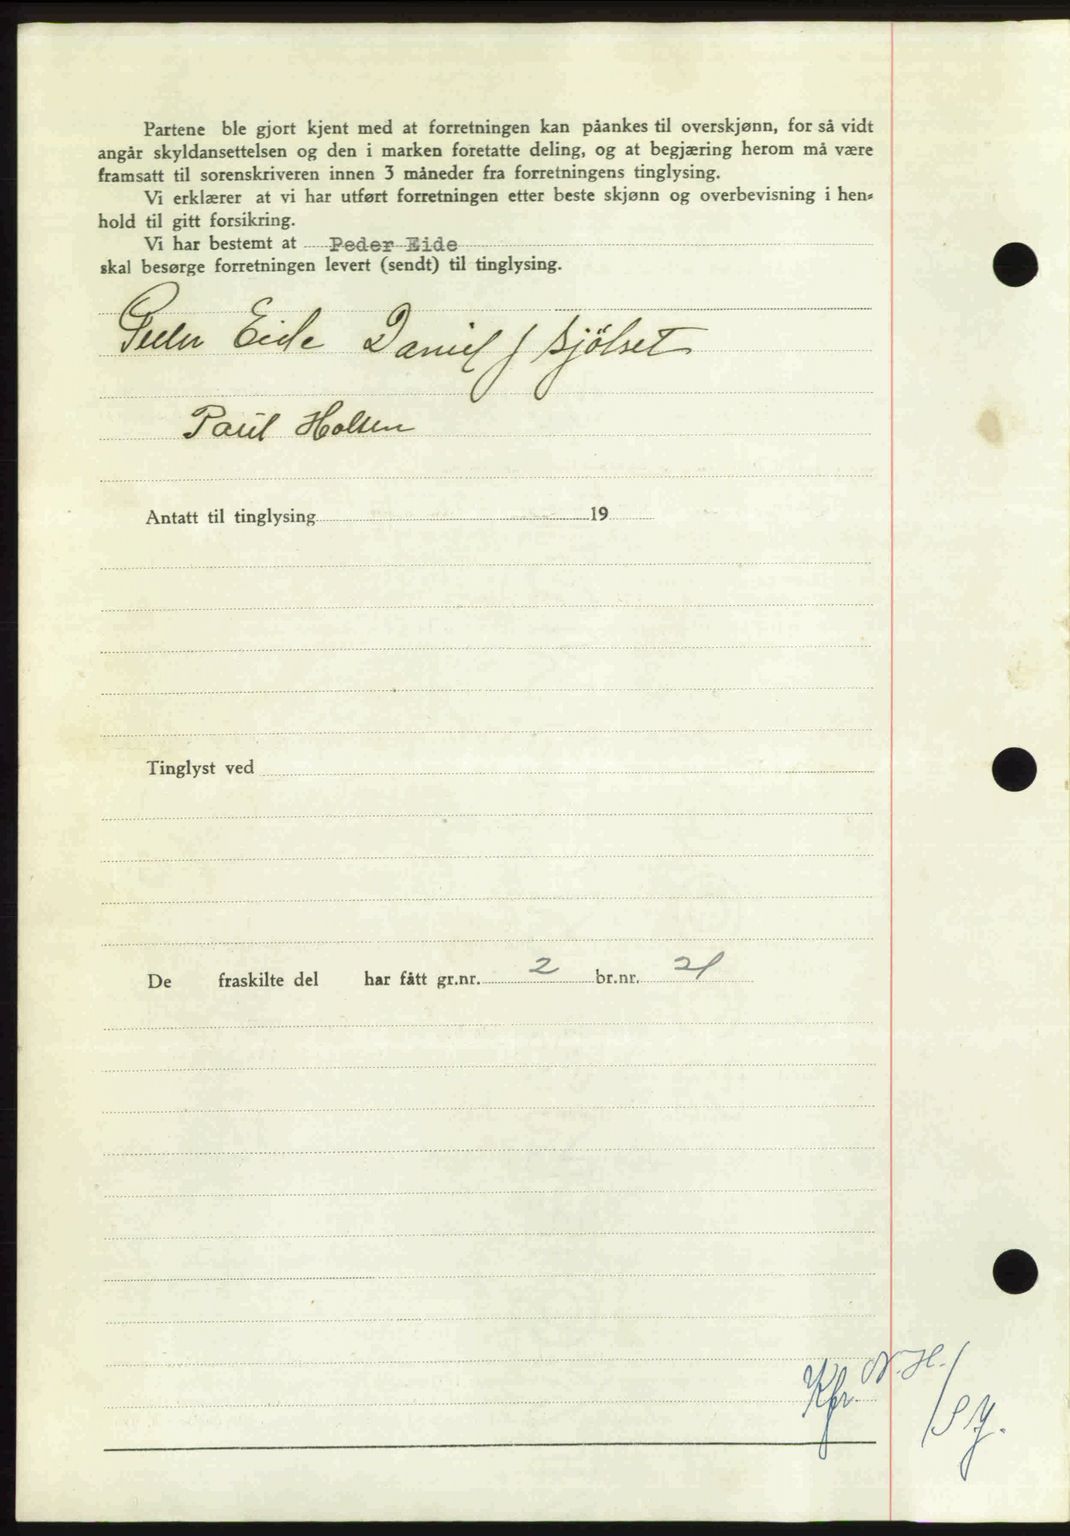 Partene ble gjort kjent med at forretningen kan påankes til overskjønn, for så vidt
angår skyldansettelsen og den i marken foretatte deling, og at begjæring herom må være
framsatt til sorenskriveren innen 3 måneder fra forretningens tinglysing.
Vi erklærer at vi har utført forretningen etter beste skjønn og overbevisning i hen-
hold til gitt forsikring.
Vi har bestemt at Peder Eide
skal besørge forretningen levert (sendt) til tinglysing.
Peder Eide Daniel J Bjölset
Paul Holsen
Antatt til tinglysing 19
Tinglyst ved
De fraskilte del har fått gr.nr. 2 br.nr. 21
Kfr. N. H./
/S J.